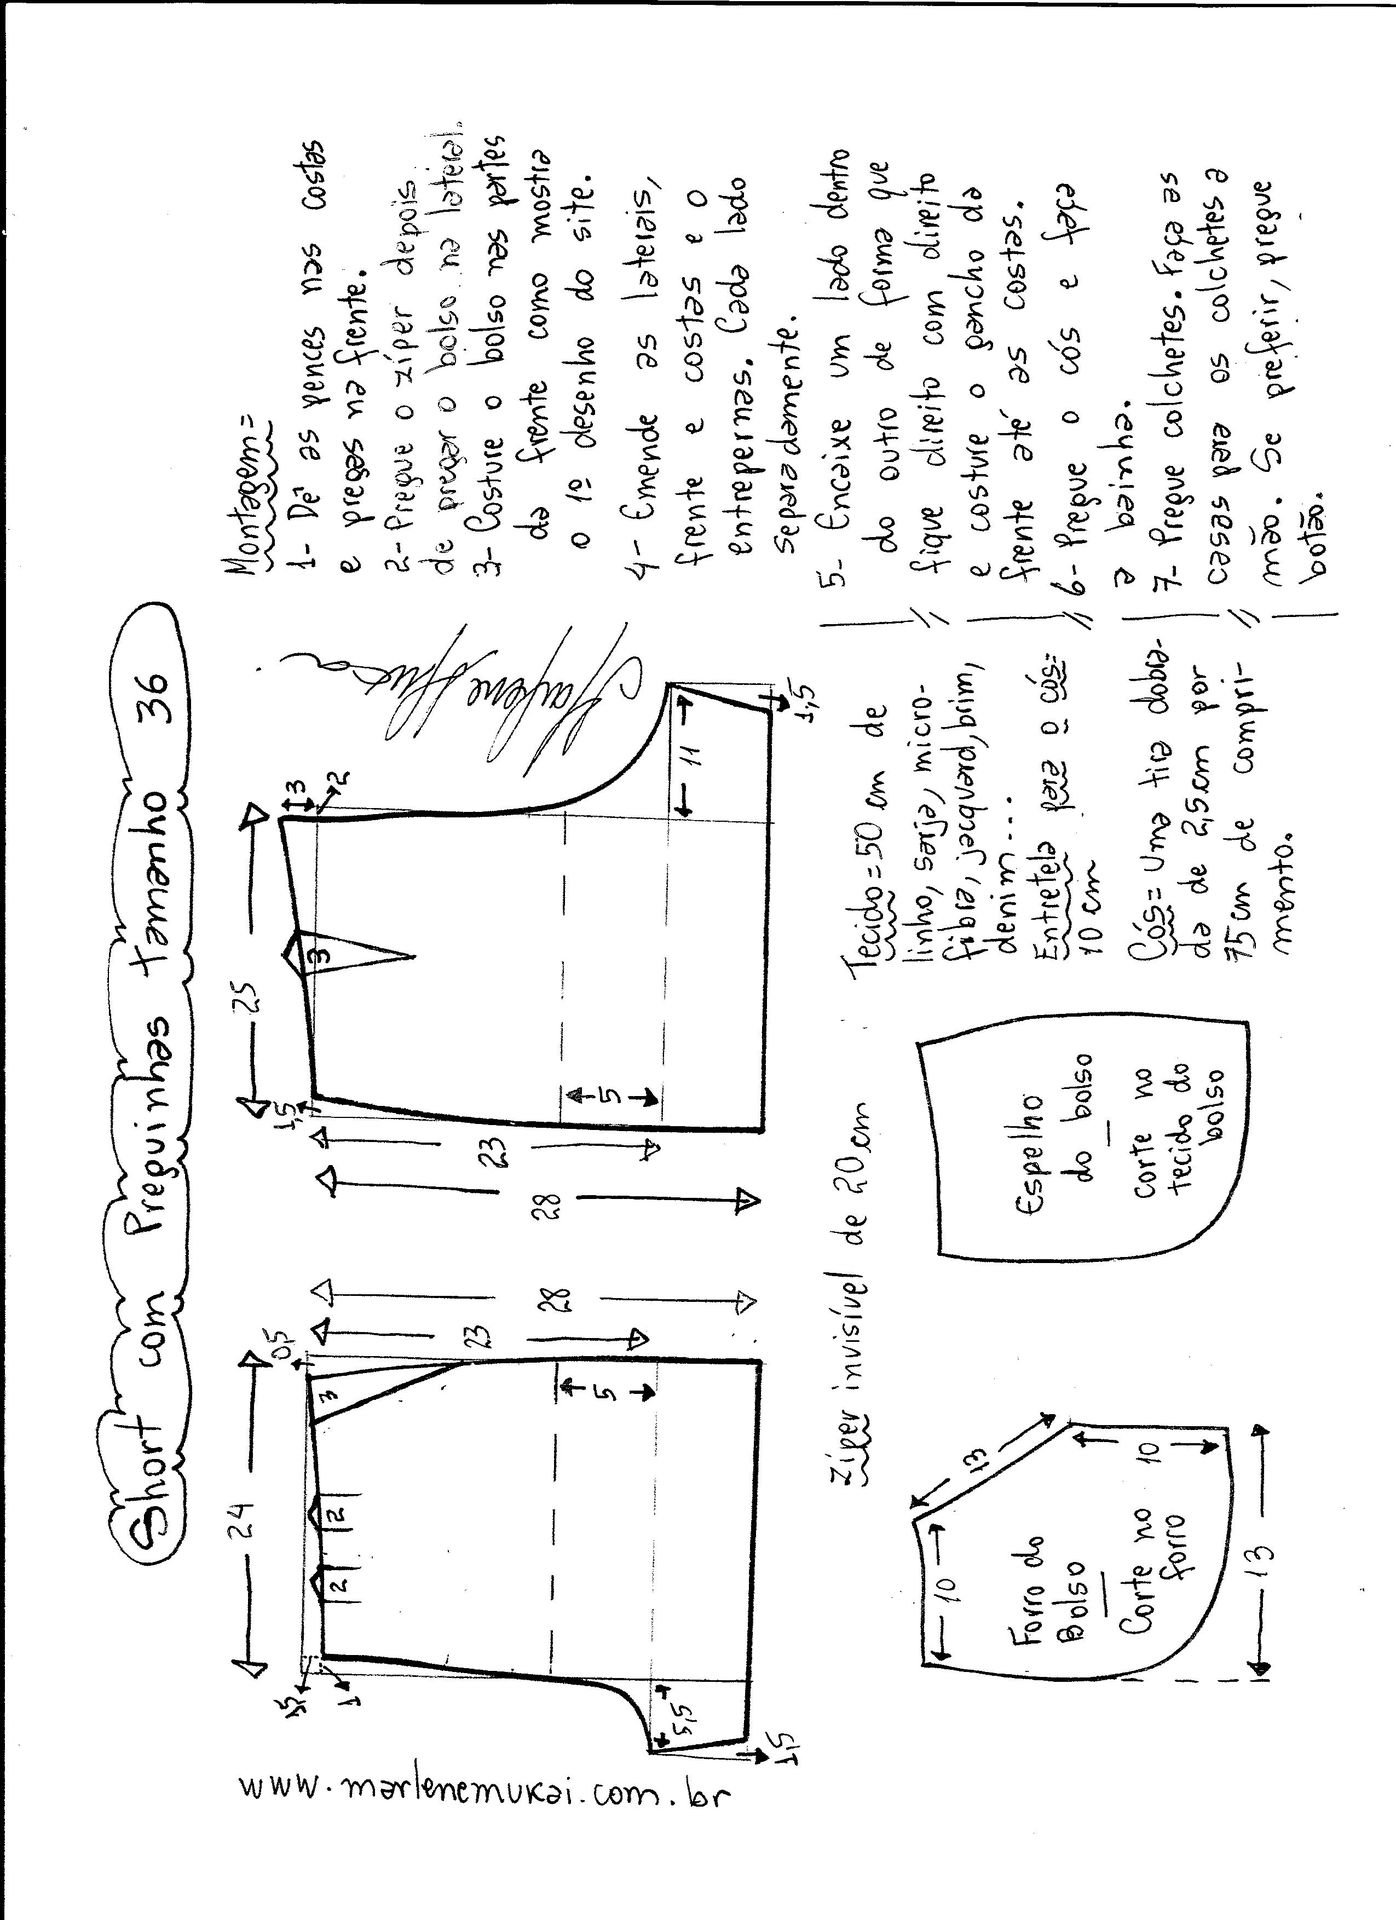 Short com Preguinhas tamanho 36
www.marlenemukai.com.br
24
1
0,5
2
2
3
23
28
5
5,5
1,5
25
1,5
3
2
3
23
28
5
11
1,5
Montagem=
1- Dê as pences nas costas
e pregas na frente.
2- Pregue o zíper depois
de pregar o bolso na lateral.
3- Costure o bolso nas partes
da frente como mostra
o 1º desenho do site.
4- Emende as laterais,
frente e costas e o
entrepernas. Cada lado
separadamente.
5- Encaixe um lado dentro
do outro de forma que
fique direito com direito
e costure o gancho da
frente até as costas.
6- Pregue o cós e faça
a bainha.
7- Pregue colchetes. Faça as
casas para os colchetes a
mão. Se preferir, pregue
botão.
Zíper invisível de 20cm
10
13
10
13
Forro do
Bolso
Corte no
forro
Espelho
do bolso
corte no
tecido do
bolso
Tecido=50 cm de
linho, sarja, micro-
fibra, jacquard, brim,
denim...
Entretela para o cós=
10 cm
Cós= Uma tira dobra-
da de 2,5cm por
75cm de compri-
mento.